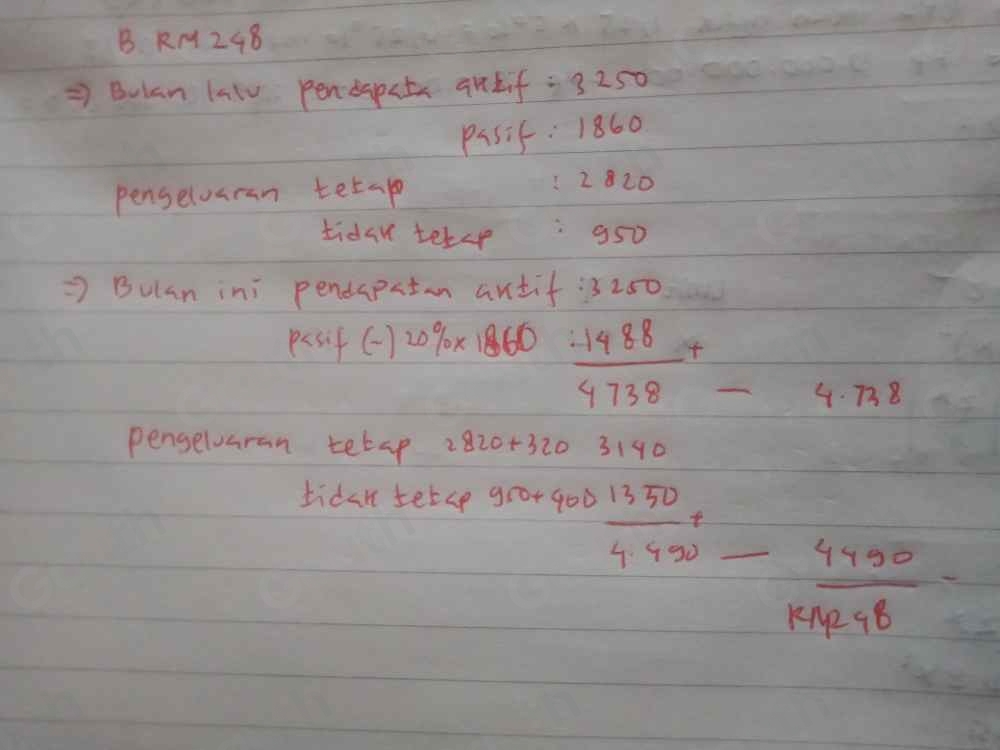 B. RM 248
⇒ Bulan lalu pendapata aktif : 3250
pasif : 1860
pengeluaran tetap : 2820
tidak tetap : 950
⇒ Bulan ini pendapatan aktif : 3250
pasif (-) 20% x 1860 : 1488 +
4738 — 4.738
pengeluaran tetap 2820+320 3140
tidak tetap 950+400 1350 +
4.490 — 4490 -
RM248